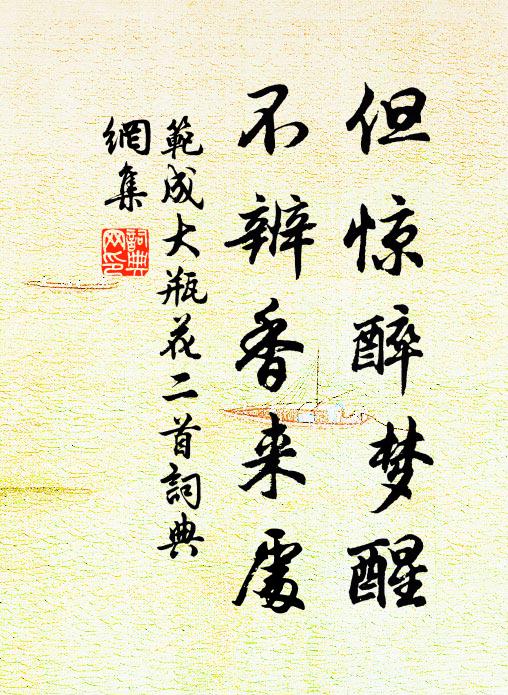 但惊醉梦醒
不辨香来處
範成大瓶花二首詞典
網集
詞典
网印